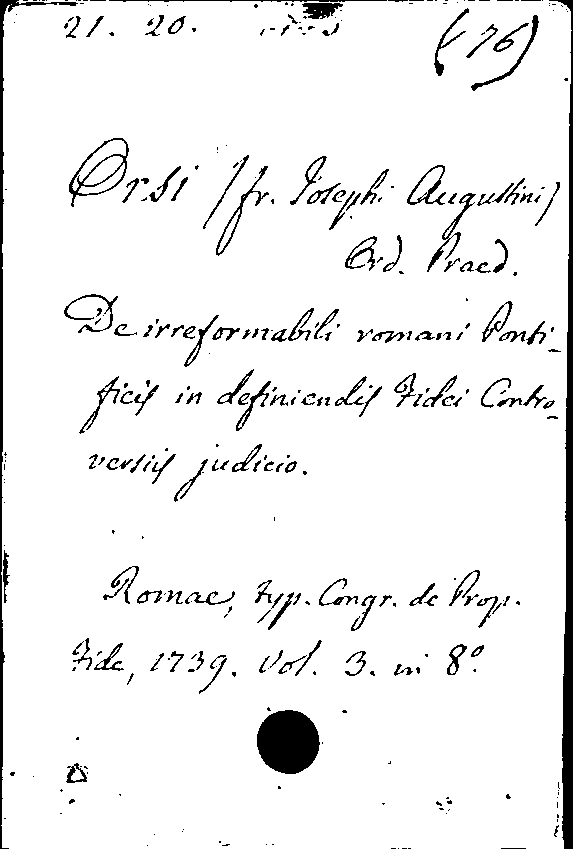 21. 20.
(76)
Orsi (fr. Josephi Augustini)
Ord. Praed.
De irreformabili romani Ponti-
ficis in definiendis Fidei Contro-
versiis judicio.
Romae, typ. Congr. de Prop.
Fide, 1739. Vol. 3. in 8º.